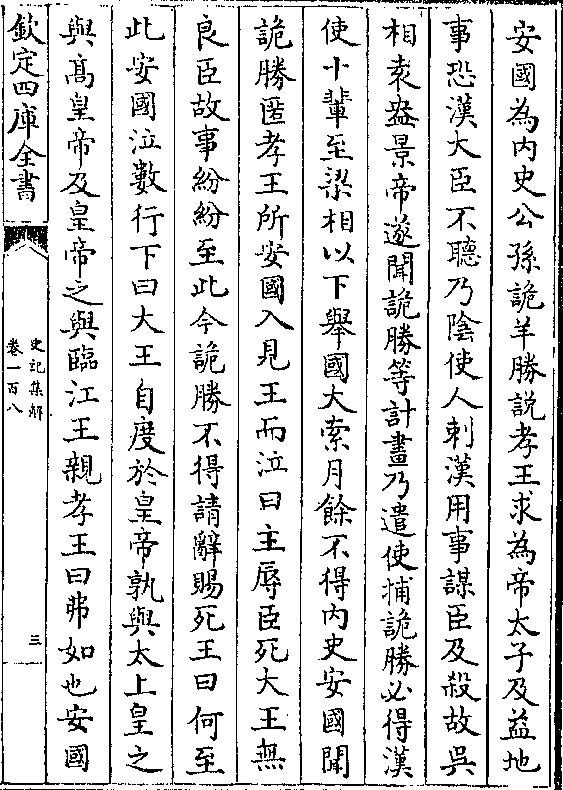 安國為内史公孫詭羊勝説孝王求為帝太子及益地
事恐漢大臣不聽乃隂使人刺漢用事謀臣及殺故吳
相袁盎景帝遂聞詭勝等計畫乃遣使捕詭勝必得漢
使十輩至梁相以下舉國大索月餘不得内史安國聞
詭勝匿孝王所安國入見王而泣曰主辱臣死大王無
良臣故事紛紛至此今詭勝不得請辭賜死王曰何至
此安國泣數行下曰大王自度於皇帝孰與太上皇之
與髙皇帝及皇帝之與臨江王親孝王曰弗如也安國
欽定四庫全書
史記集解
卷一百八
三